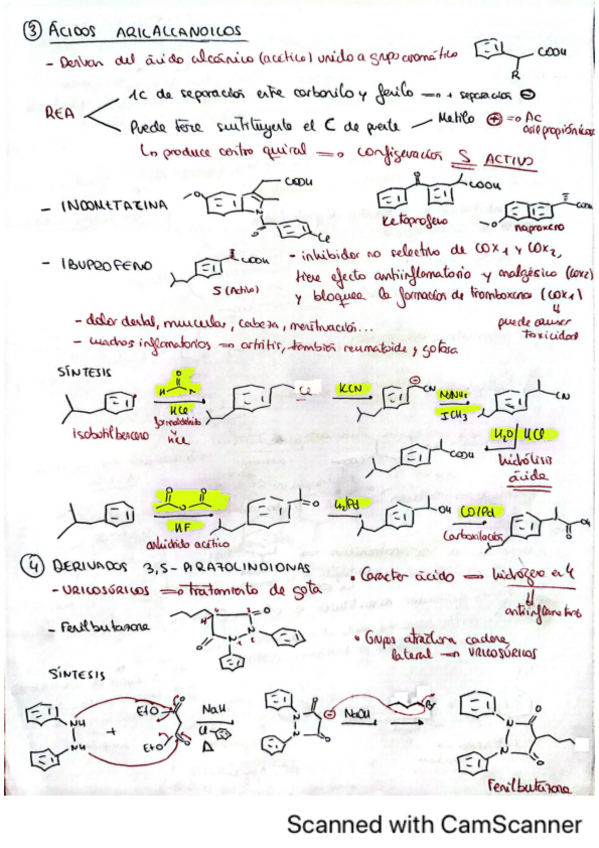 ③ ÁCIDOS ARILALCANOICOS
- Derivan del ácido alcánico (acético) unido a grupo aromático
COOH
R
REA
1C de separación entre carbonilo y fenilo → + separación ⊖
Puede tener sustituyente el C de puente
Metilo ⊕ ⇒ Ac
arilpropiónicos
Lo produce centro quiral ⇒ configuración S ACTIVO
- INDOMETAZINA
COOH
Cl
COOH
Ketoprofeno
COOH
naproxeno
- IBUPROFENO
COOH
S (Activo)
- inhibidor no selectivo de COX1 y COX2,
tiene efecto antiinflamatorio y analgésico (COX2)
y bloquea la formación de tromboxeno (COX1)
puede causar
toxicidad
- dolor dental, muscular, cabeza, menstruación...
- cuadros inflamatorios ⇒ artritis, también reumatoide y gotosa
SÍNTESIS
isobutilbenceno
HCl
formaldehído
HCl
Cl
KCN
CN
NaNH2
ICH3
CN
H2O/HCl
hidrólisis
ácida
COOH
HF
anhídrido acético
O
H2/Pd
OH
CO/Pd
Carboxilación
OH
④ DERIVADOS 3,5-PIRAZOLINDIONAS
- URICOSÚRICOS ⇒ tratamiento de gota
• Carácter ácido ⇒ hidrógeno en 4
antiinflamatorio
- Fenilbutazona
• Grupos atractores cadena
lateral ⇒ URICOSÚRICOS
SÍNTESIS
NH
NH
+
EtO
EtO
NaH
Δ
NaOH
Br
Fenilbutazona
Scanned with CamScanner